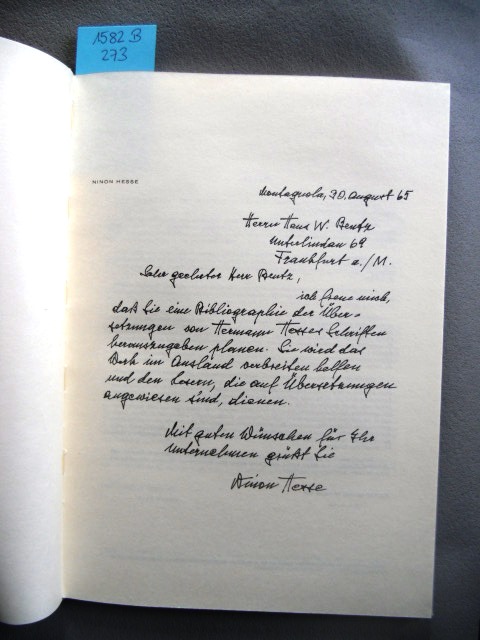 1582 B
273
NINON HESSE
Montagnola, 30. August 65
Herrn Hans W. Bentz
Unterlindau 69
Frankfurt a./M.
Sehr geehrter Herr Bentz,
ich freue mich,
daß Sie eine Bibliographie der Über-
setzungen von Hermann Hesses Schriften
herauszugeben planen. Sie wird das
Werk im Ausland verbreiten helfen
und den Lesern, die auf Übersetzungen
angewiesen sind, dienen.
Mit guten Wünschen für Ihr
Unternehmen grüßt Sie
Ninon Hesse